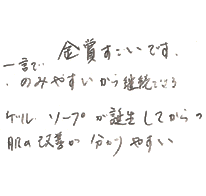 金賞すごいです.
一言で
・のみやすいから継続できる
ゲルソープが誕生してからの
肌の改善が分かりやすい